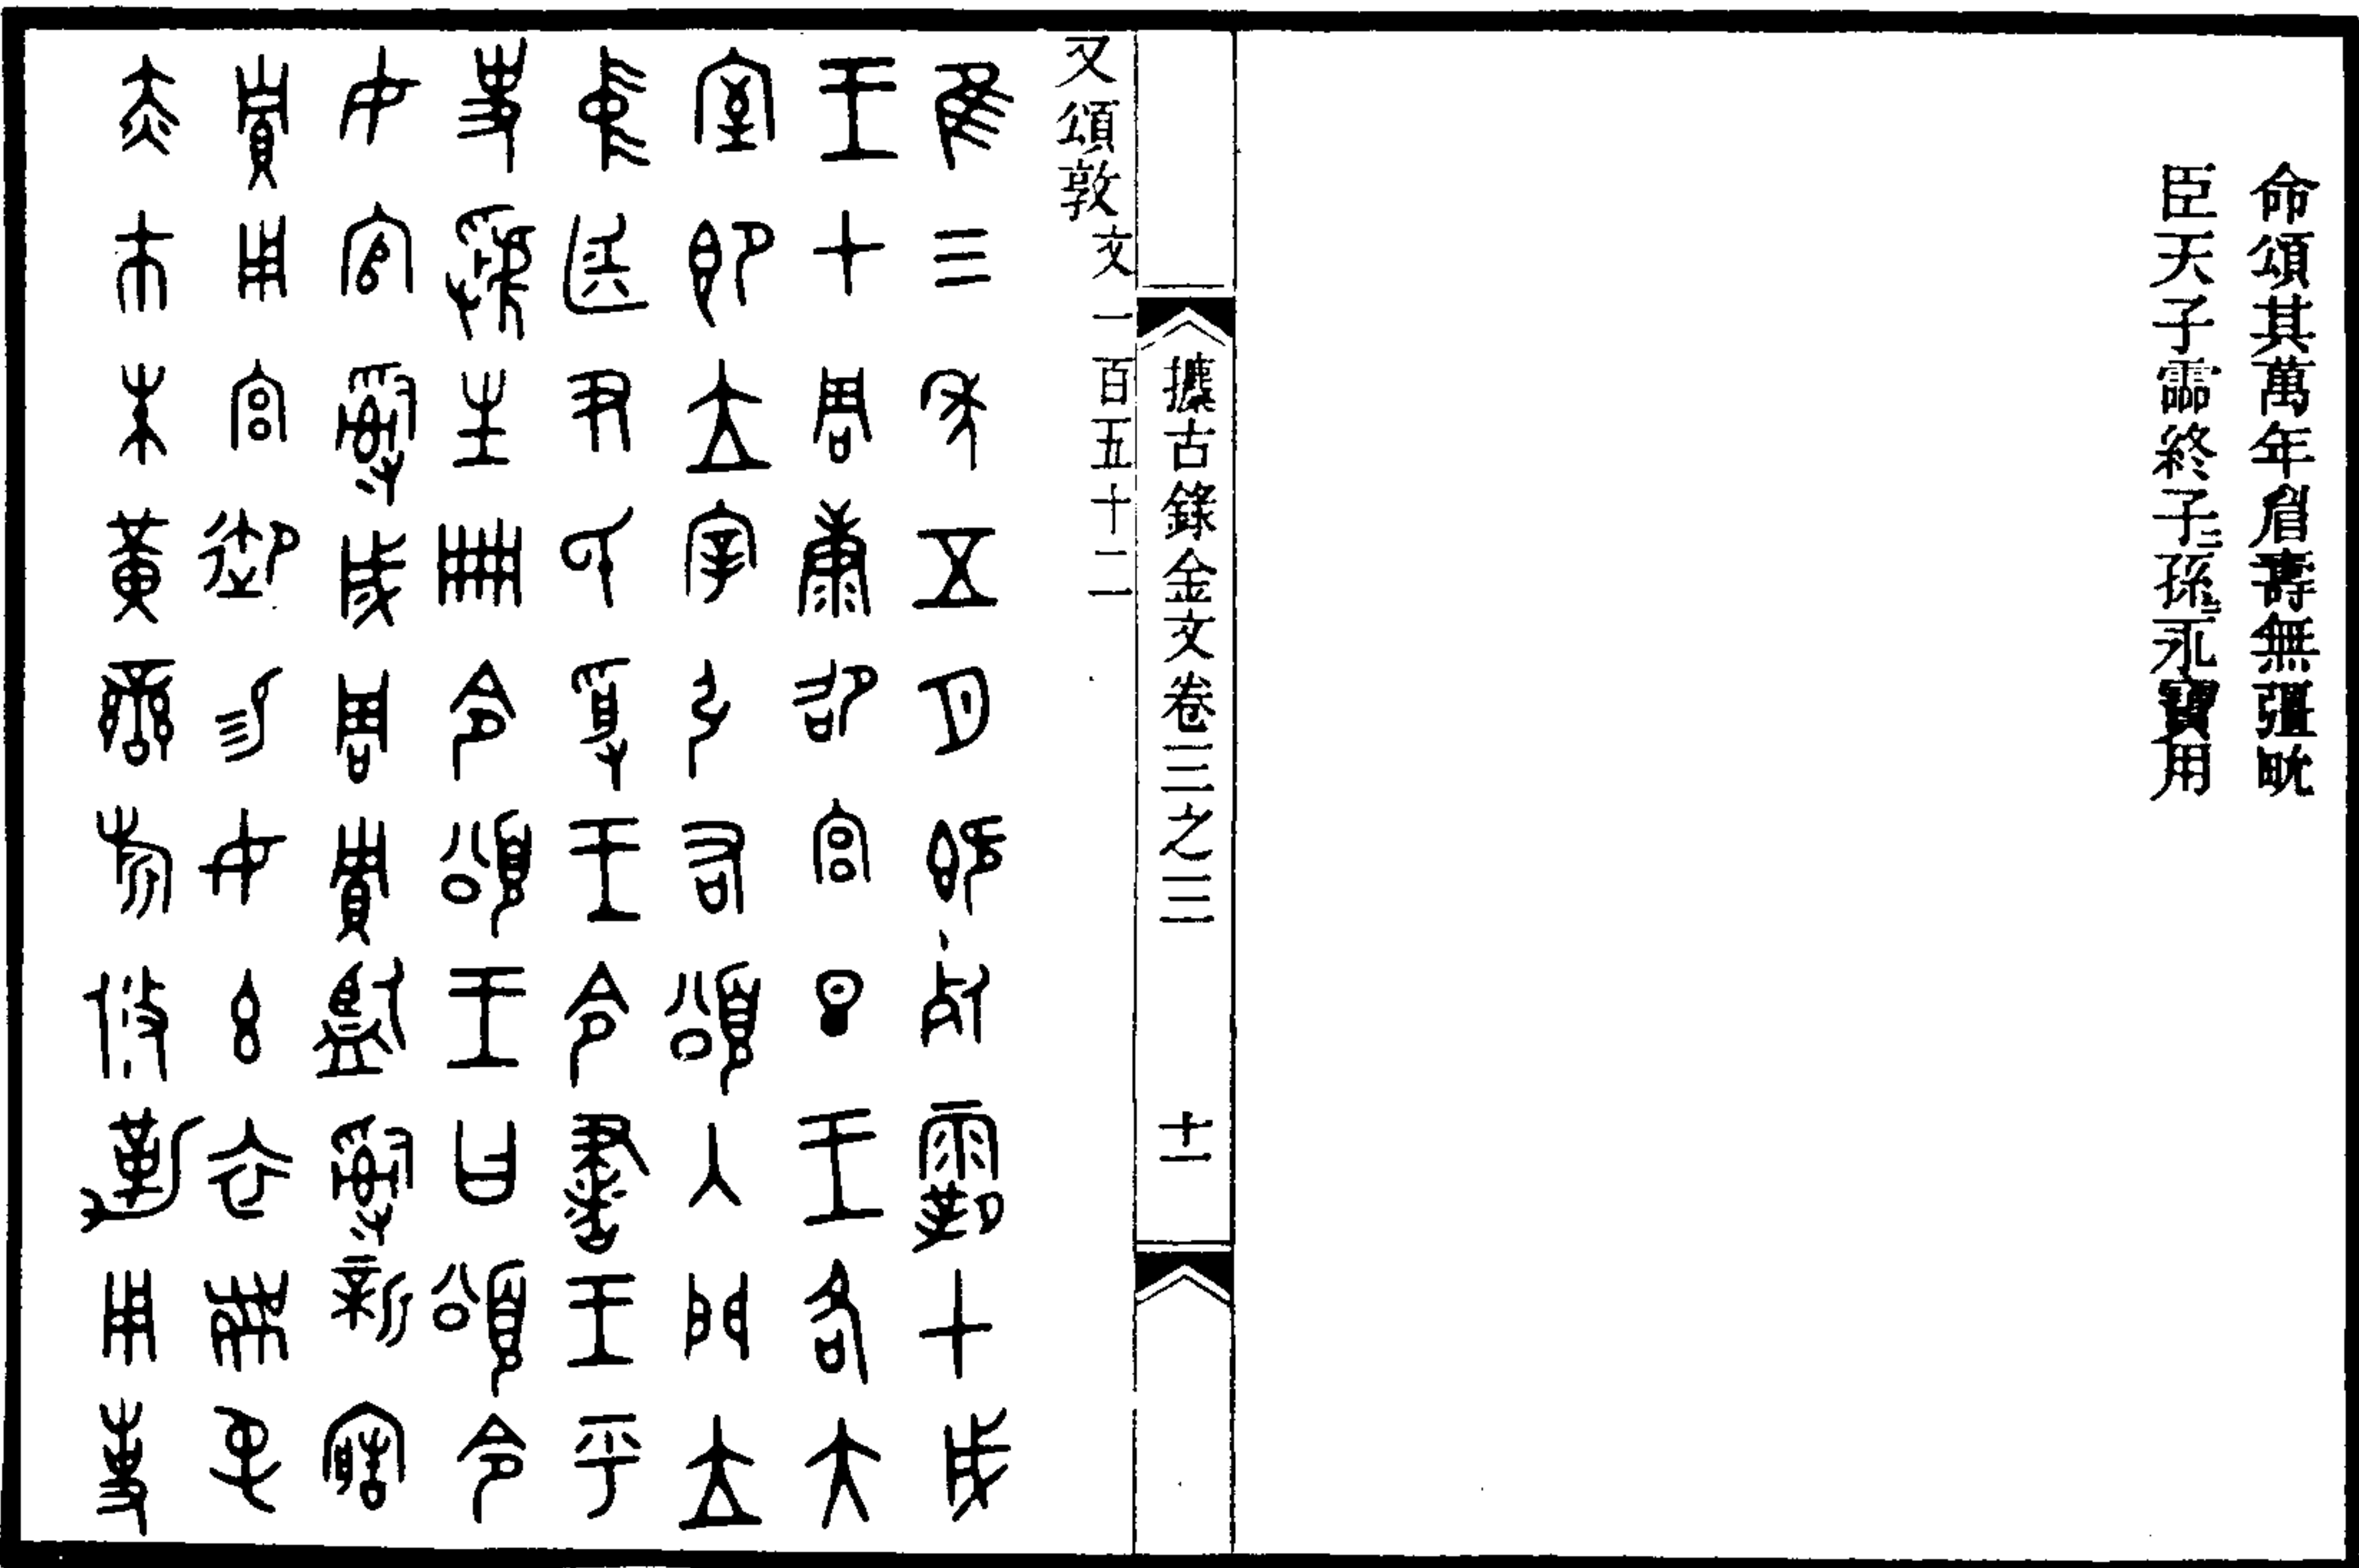 命頌其萬年眉壽無疆㽙
臣天子霝終子=孫=永寶用
攈古錄金文卷三之三
十一
又頌敦 文一百五十二
隹三年五月既死霸甲戌
王才周康卲宮旦王各大
室即立宰引右頌入門立
中廷尹氏受王令書王乎
史虢生冊令頌王曰頌令
女官𤔲成周貯監𤔲新造
貯用宮御易女玄衣黹屯
赤巿朱黃䜌旂攸勒用事